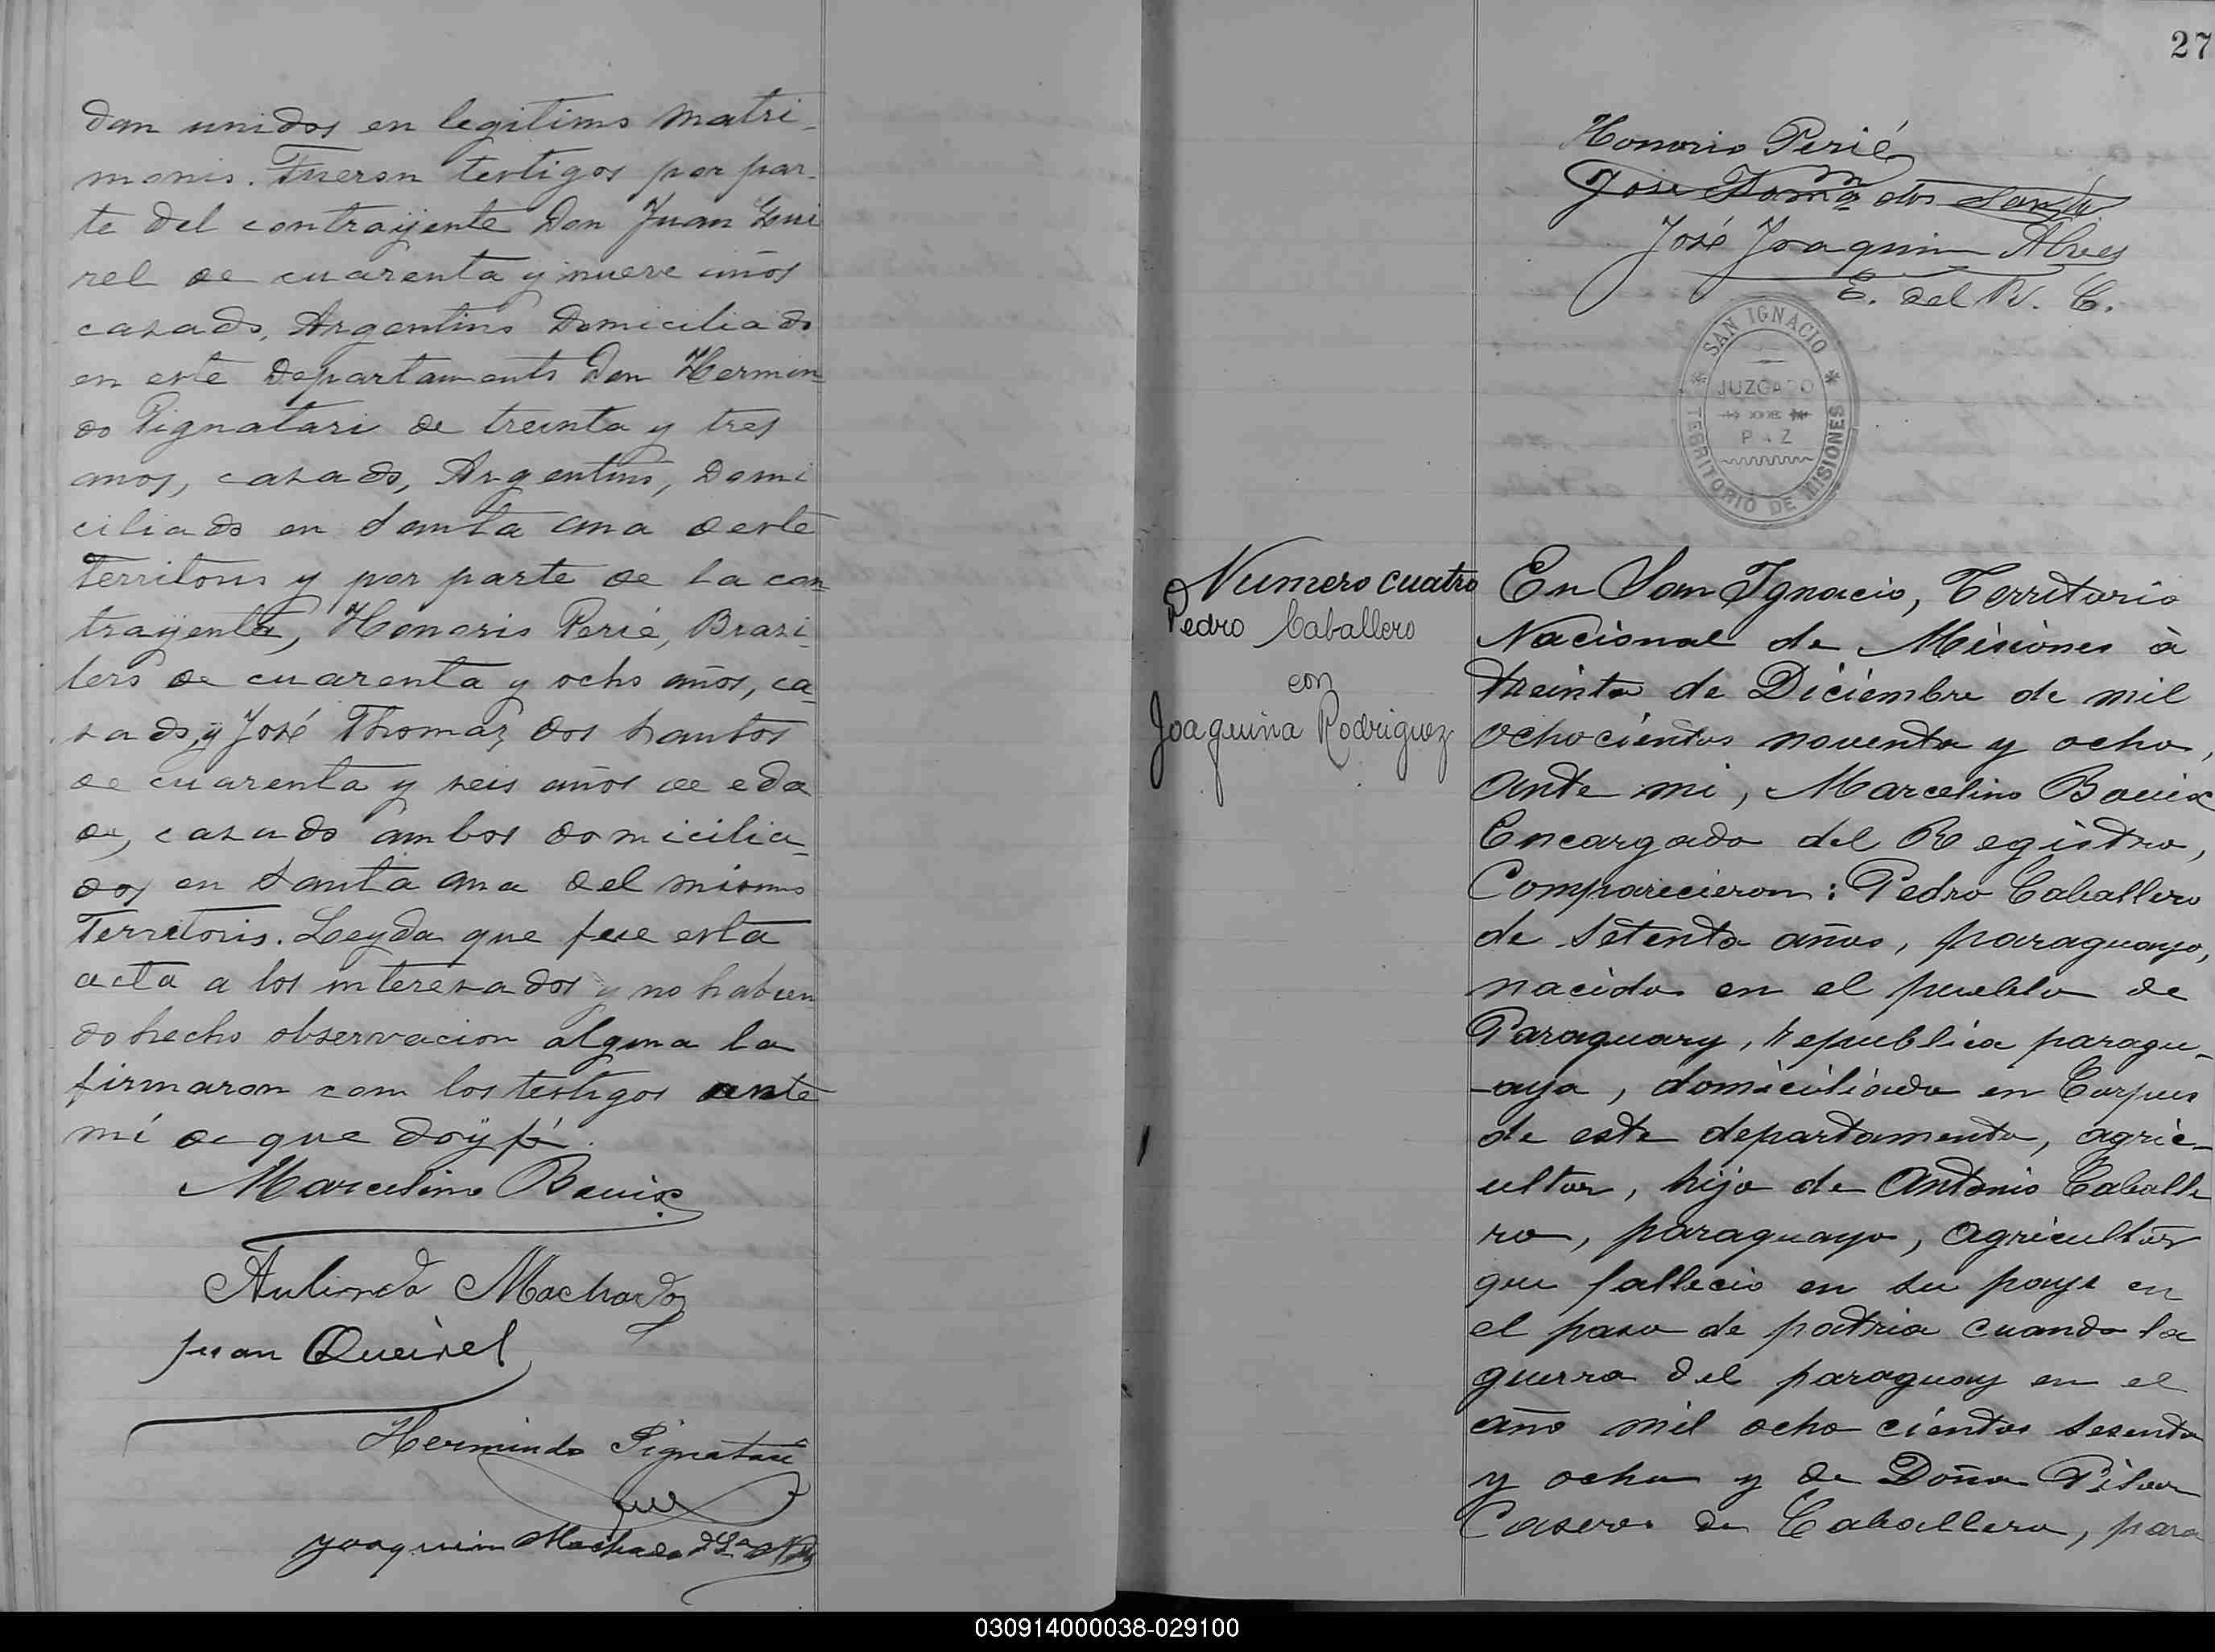 dan unidos en legitimo matri-
monio. Fueron testigos por par-
te del contrayente Don Juan Qui
rel de cuarenta y nueve años
casado, Argentino domiciliado
en este departamento Don Hermin-
do Pignatari de treinta y tres
anos, casado, Argentino, domi
ciliado en Santa ana deste
territorio y por parte de la con-
trayenta, Honorio Perié, Brazi-
lero de cuarenta y ocho años, ca-
sado, y José Thomaz dos Santos
de cuarenta y seis años de eda
de, casado ambos domicilia-
dos en Santa ana del mismo
Territorio. Leyda que fue esta
acta a los interesados y no habien
do hecho observacion alguna la
firmaron com los testigos ante
mí de que doy fé.
Marcelino Bouix
Machado
Juan Queirel
Hermindo Pignatari
Joaquim Machado
27
Honorio Perié
Jose dos Santos
José Joaquin Alves
E. del R. C.
SAN IGNACIO
JUZGADO
DE
PAZ
TERRITORIO DE MISIONES
Numero cuatro
Pedro Caballero
con
Joaquina Rodriguez
En San Ignacio, Territorio
Nacional de Misiones à
treinta de Diciembre de mil
ochocientos noventa y ocho,
ante mi, Marcelino Bouix
Encargado del Registro,
Comparecieron: Pedro Caballero
de setenta años, paraguayo,
nacido en el pueblo de
Paraguary, republica paragu-
-aya, domiciliado en Corpus
de este departamento, agric-
ultor, hijo de Antonio Caballe
ro, paraguayo, agricultor
que fallecio en su pays en
el paso de patria cuando la
guerra del paraguay en el
año mil ocho cientos sesenta
y ocho y de Doña Pilar
Casero de Caballero, para
030914000038-029100